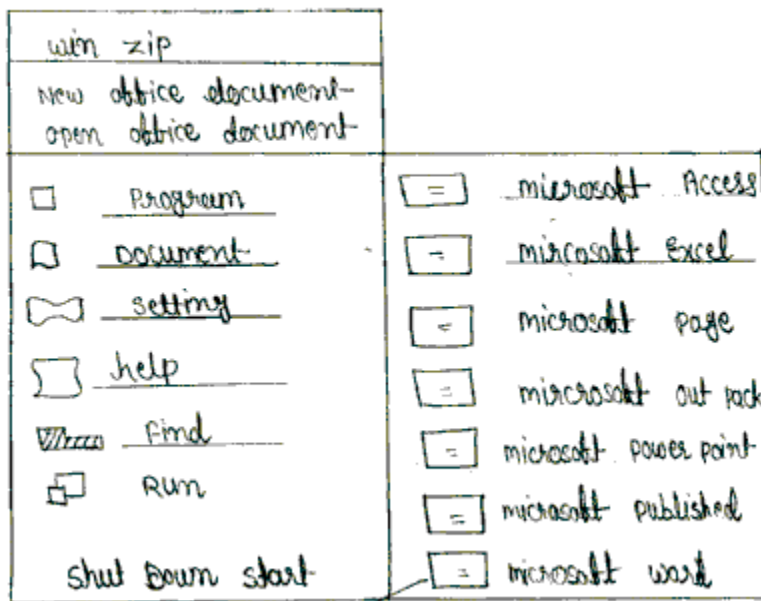 win zip
New office document
open office document
Program
Document
setting
help
Find
Run
Shut Down start
microsoft Access
mircosoft Excel
microsoft page
mircrosoft out pack
microsoft power point
microsoft published
microsoft word